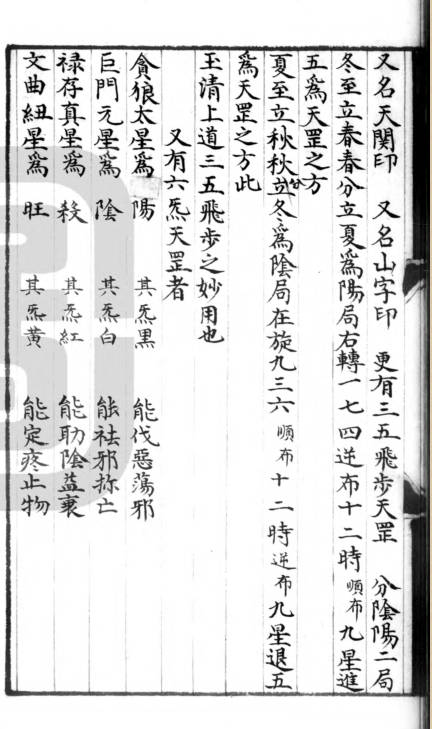 又名天関印　又名山字印　更有三五飛步天罡　分陰陽二局
冬至立春春分立夏為陽局右轉一七四逆布十二時順布九星進
五為天罡之方
夏至立秋秋分立冬為陰局在旋九三六順布十二時逆布九星退五
為天罡之方此
玉清上道三五飛步之妙用也
又有六炁天罡者
貪狼太星為陽　其炁黑　能伐惡蕩邪
巨門元星為陰　其炁白　能祛邪捺亡
祿存真星為殺　其炁紅　能助陰益衰
文曲紐星為旺　其炁黃　能定疼止物